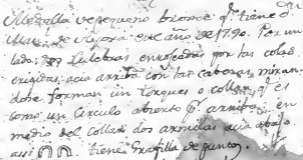 Medalla de pequeño bronce q.e tiene d.n
Man.l de Ayora este año de 1790. Por un
lado, dos Culebras enroscadas por las colas
erguidas acia arriba con las cabezas miran
dose forman un torques o collar q.e es
como un Circulo abierto p.r arriba, en
medio del Collar dos armelas acia abajo
assi tiene Grafila de puntos.